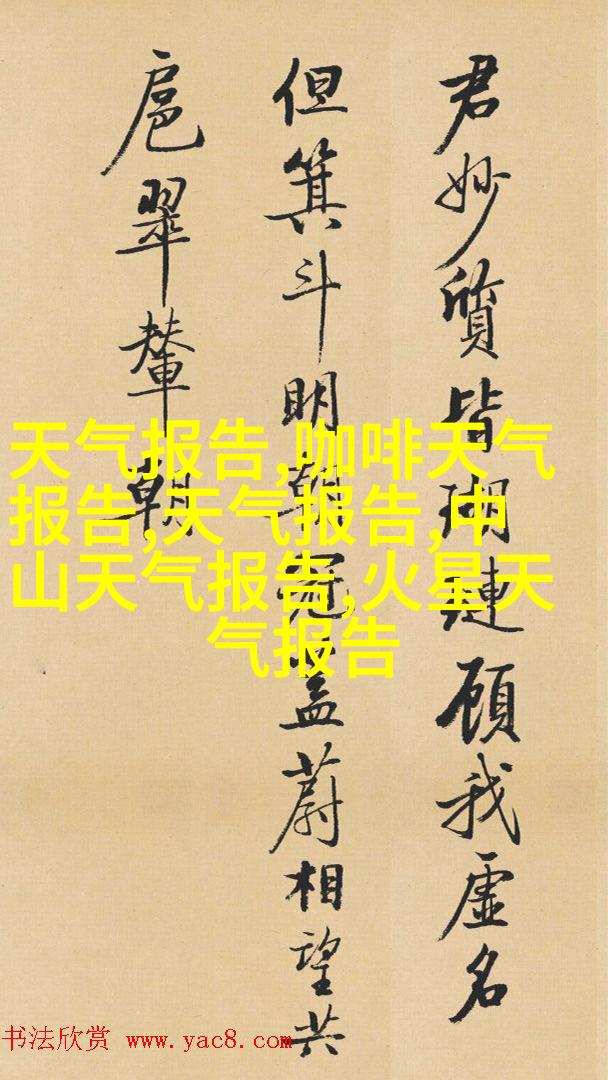 君妙質皆瑚璉顧我虚名
但箕斗明朝冠盖蔚相望共
扈翠輦朝
天气报告,咖啡天气
报告,天气报告,中
山天气报告,火星天
气报告
书法欣赏 www.yac8.com